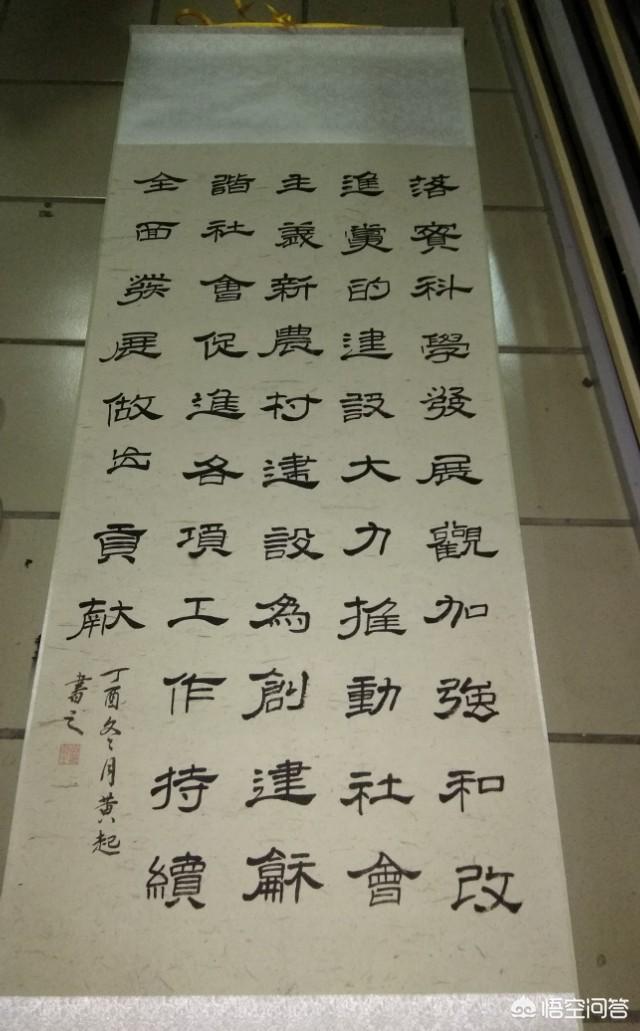 落實科學發展觀加強和改
進黨的建設大力推動社會
主義新農村建設為創建龢
諧社會促進各項工作持續
全面發展做出貢献
丁酉冬月黄起
書之
悟空问答